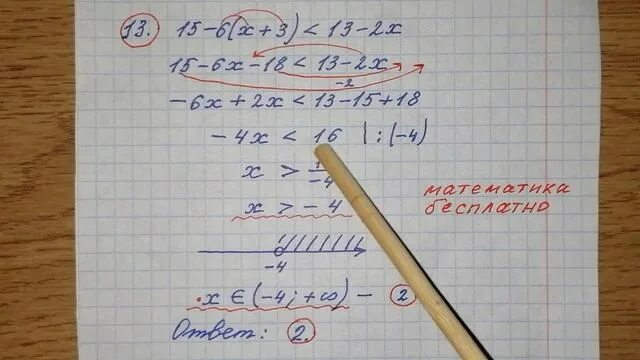 13. 15-6(x+3)<13-2x
15-6x-18<13-2x
-2
-6x+2x<13-15+18
-4x < 16 | : (-4)
x > -4
x > -4
математика
бесплатно
-4
x ∈ (-4; +∞) - 2
Ответ: 2.